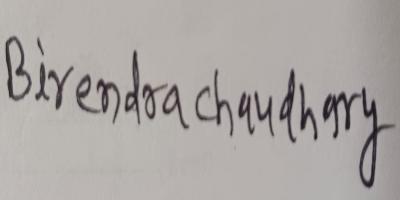 Birendra chaudhary